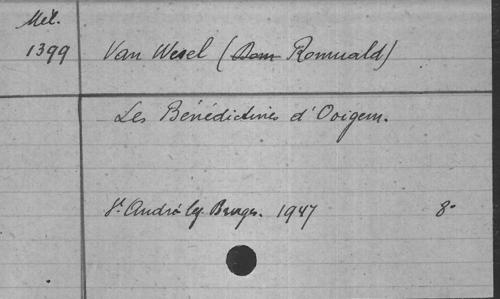 Mél.
1399 Van Wesel (Dom Romuald)
Les Bénédictines d'Ooigem.
St. André lez Bruges. 1947 8°